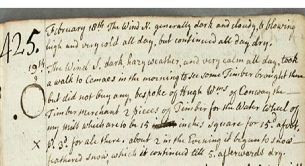 425. February 18th The Wind N. generally dark and cloudy, & blowing
high and very cold all day, but continued all day dry.
19th The Wind S. dark hazy weather, and very calm all day, took
a walk to Cemaes in the morning to see some Timber brought there
but did not buy any bespoke of Hugh Wms of Conway the
Timber merchant 2 pieces of Timber for the Water Wheel of
my Mill which are to be 15 inches square for 15s. a
X P. for all there, about 2 in the Evening it began to snow
feathered snow, which it continued till 5. afterwards dry.